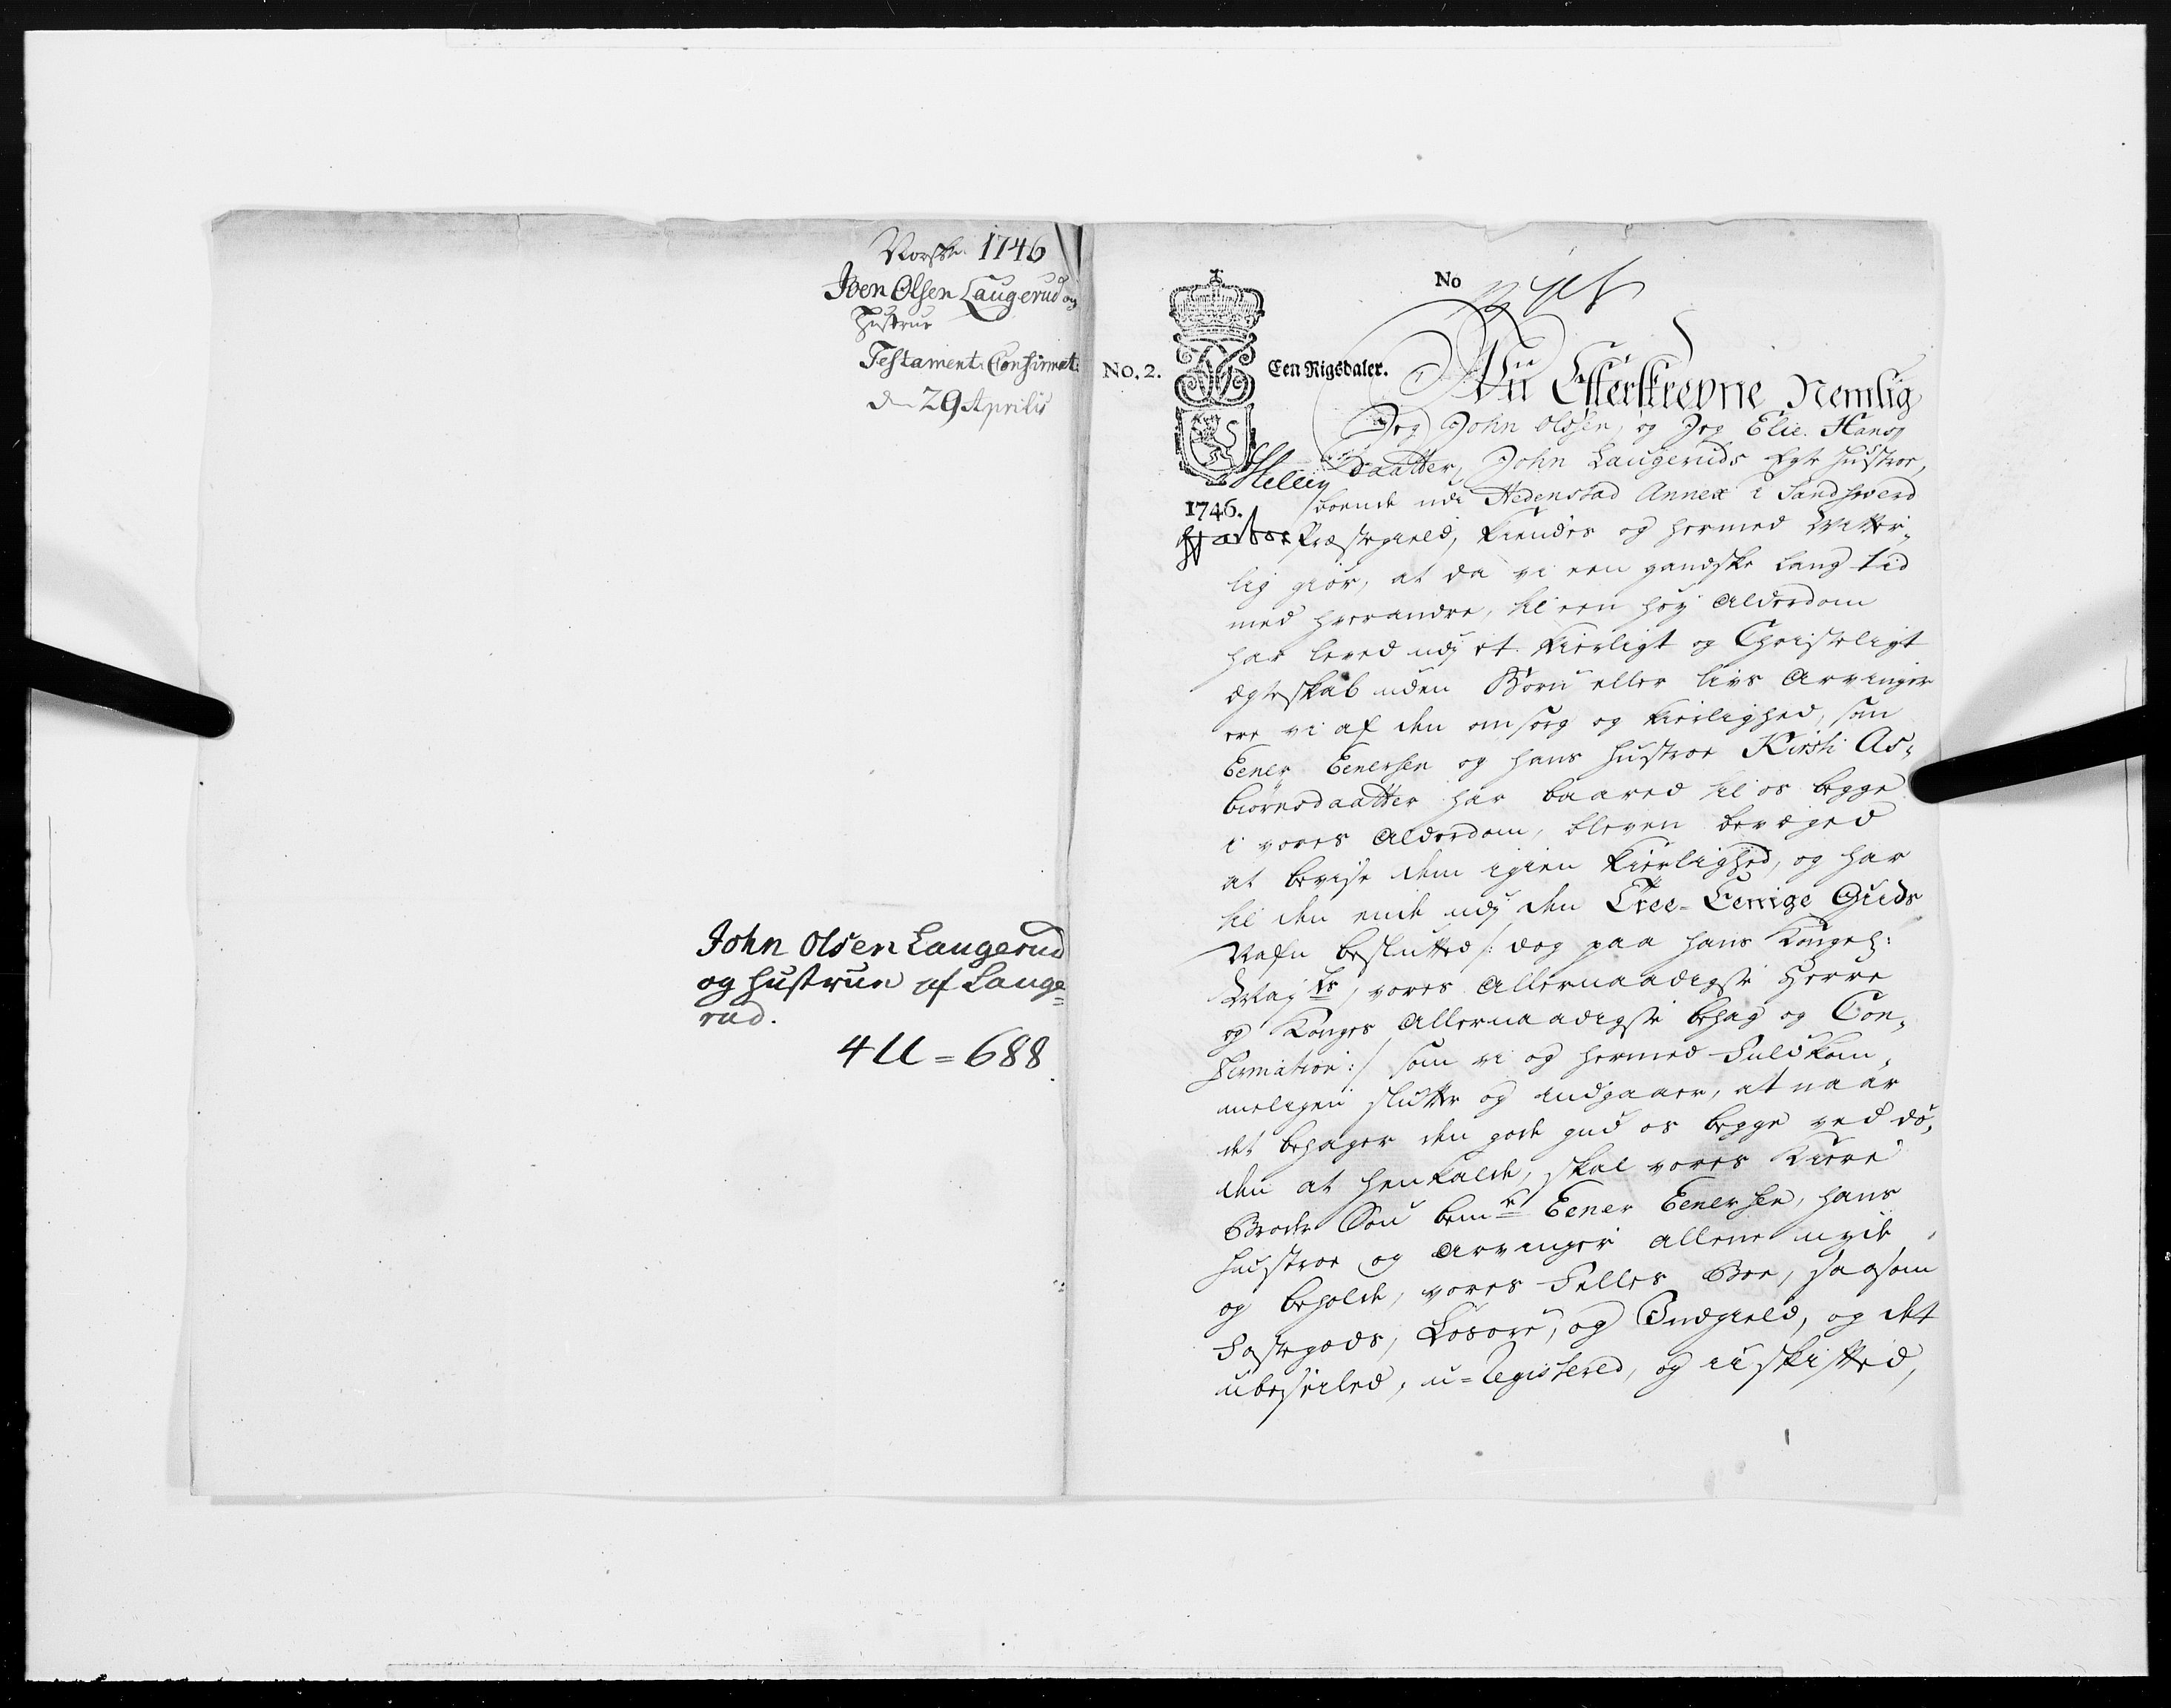 Norske. 1746
Joen Olsen Laugerud og
Hustrue
Testament: Confirmat:
d 29 Aprilis
John Olsen Laugerud
og hustrue af Lauge=
rud.
4 U = 688
No
No. 2.
Een Rigsdaler.
1746.
Vii Efterskrevne Nemlig
Jeg John Olssen, og Jeg Elie Hans
Daatter, John Laugeruds Egte Hustroe,
boende udi Hedenstad Annex i Sandsverd
Præstegield, kiendes og hermed Vitter,
lig giør, at da vi een gandske lang tid
med hverandre, til een høy Alderdom
har leved udj et kierligt og Christeligt
Ægteskab uden Børn eller livs Arvinger
ere vi af den omsorg og kierlighed, som
Eener Eenersen og hans hustroe Kirsti As,
biørnsdaatter har baared til os begge
i vores Alderdom, bleven bevæged
at bevise dem igien kierlighed, og har
til den ende udj den Tree-Eenige Guds
Nafn beslutted /: dog paa hans Kongel:
Mayts, vores Allernaadigste Herre
og Konges Allernaadigste behag og Con,
firmation :/ som vi og hermed fuldkom,
meligen slutter og indgaaer, at naar
det behager den gode gud os begge ved dø,
den at henkalde, skal vores Kiere
Broder Søn bemte Eener Eenersen, hans
hustroe og Arvinger allene nyde
og beholde, vores Felles Boe, saasom
Fastegods, Løsøre, og Indgield, og det
ubeseiled, u-Registered, og uskifted,